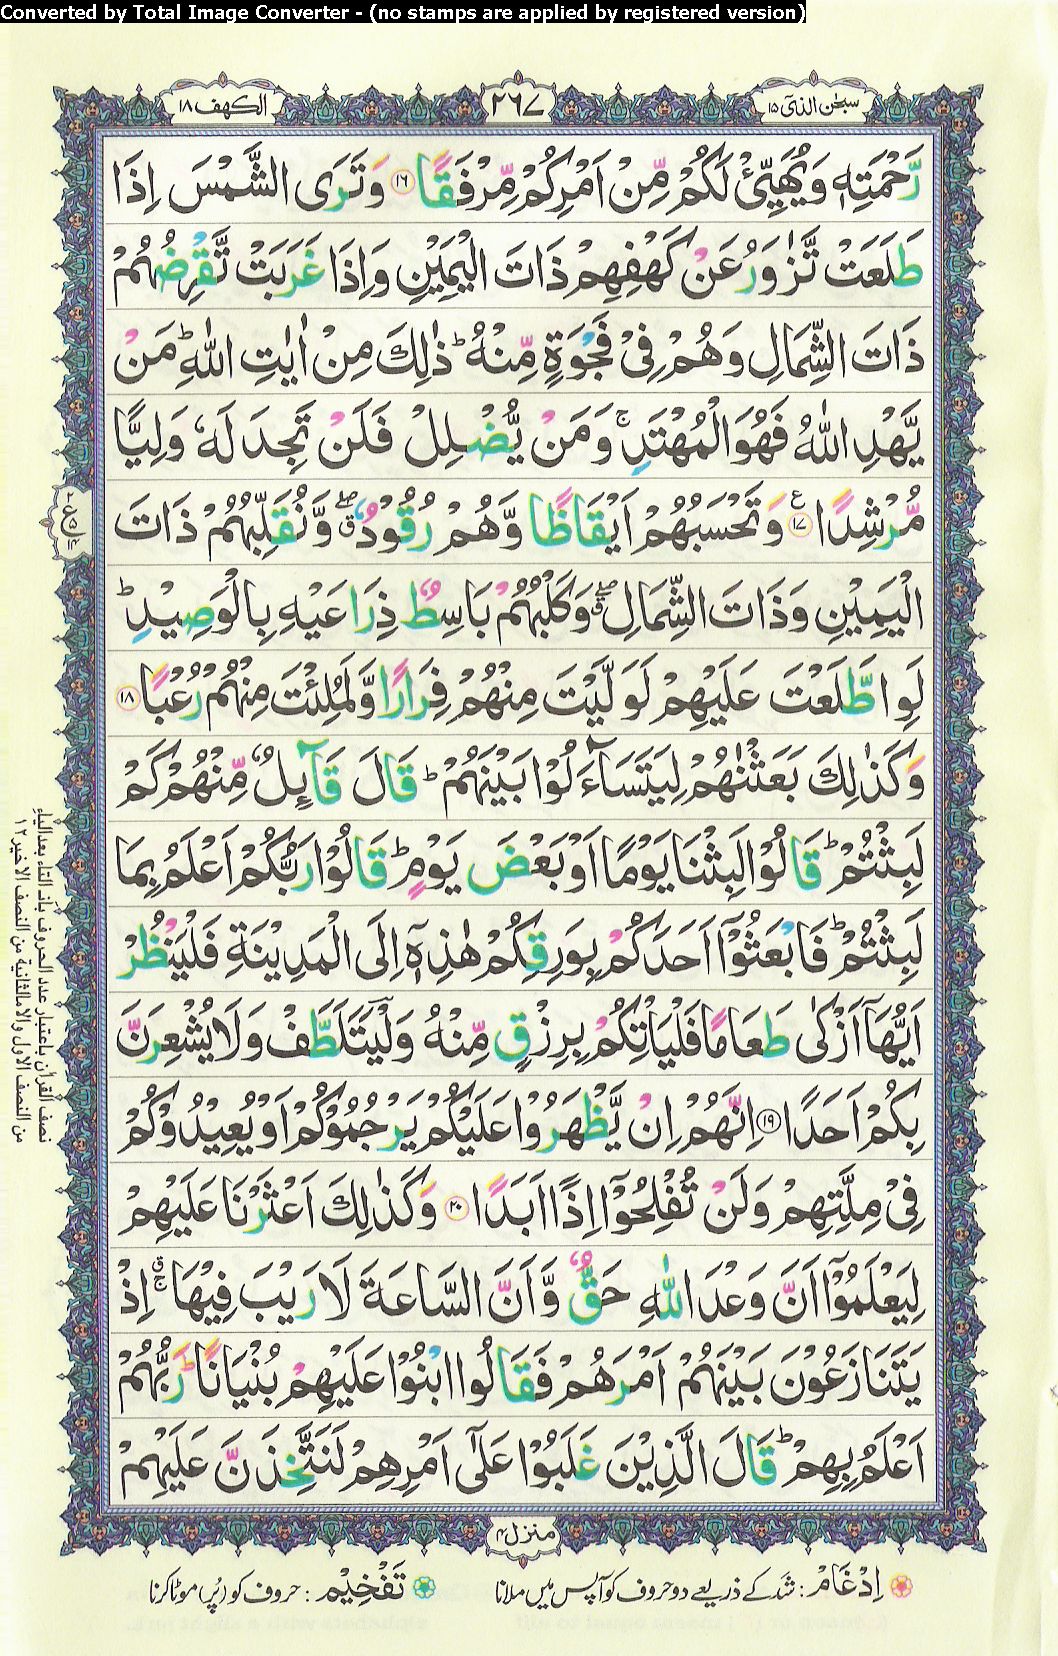 Converted by Total Image Converter - (no stamps are applied by registered version)
سبحٰن الذیٓ ۱۵
۲۶۷
الکھف ۱۸
رَّحْمَتِهٖ وَیُهَیِّئْ لَكُمْ مِّنْ اَمْرِكُمْ مِّرْفَقًا ۝۱۶ وَتَرَى الشَّمْسَ اِذَا
طَلَعَتْ تَّزٰوَرُ عَنْ كَهْفِهِمْ ذَاتَ الْیَمِیْنِ وَاِذَا غَرَبَتْ تَّقْرِضُهُمْ
ذَاتَ الشِّمَالِ وَهُمْ فِیْ فَجْوَةٍ مِّنْهُ ؕ ذٰلِكَ مِنْ اٰیٰتِ اللّٰهِ ؕ مَنْ
یَّهْدِ اللّٰهُ فَهُوَ الْمُهْتَدِ ۚ وَمَنْ یُّضْلِلْ فَلَنْ تَجِدَ لَهٗ وَلِیًّا
مُّرْشِدًا ۝۱۷ ع وَتَحْسَبُهُمْ اَیْقَاظًا وَّهُمْ رُقُوْدٌ ۖق وَّنُقَلِّبُهُمْ ذَاتَ
الْیَمِیْنِ وَذَاتَ الشِّمَالِ ۖق وَكَلْبُهُمْ بَاسِطٌ ذِرَاعَیْهِ بِالْوَصِیْدِ ؕ
لَوِ اطَّلَعْتَ عَلَیْهِمْ لَوَلَّیْتَ مِنْهُمْ فِرَارًا وَّلَمُلِئْتَ مِنْهُمْ رُعْبًا ۝۱۸
وَكَذٰلِكَ بَعَثْنٰهُمْ لِیَتَسَآءَلُوْا بَیْنَهُمْ ؕ قَالَ قَآىِٕلٌ مِّنْهُمْ كَمْ
لَبِثْتُمْ ؕ قَالُوْا لَبِثْنَا یَوْمًا اَوْ بَعْضَ یَوْمٍ ؕ قَالُوْا رَبُّكُمْ اَعْلَمُ بِمَا
لَبِثْتُمْ ؕ فَابْعَثُوْۤا اَحَدَكُمْ بِوَرِقِكُمْ هٰذِهٖۤ اِلَى الْمَدِیْنَةِ فَلْیَنْظُرْ
اَیُّهَاۤ اَزْكٰى طَعَامًا فَلْیَاْتِكُمْ بِرِزْقٍ مِّنْهُ وَلْیَتَلَطَّفْ وَلَا یُشْعِرَنَّ
بِكُمْ اَحَدًا ۝۱۹ اِنَّهُمْ اِنْ یَّظْهَرُوْا عَلَیْكُمْ یَرْجُمُوْكُمْ اَوْ یُعِیْدُوْكُمْ
فِیْ مِلَّتِهِمْ وَلَنْ تُفْلِحُوْۤا اِذًا اَبَدًا ۝۲۰ وَكَذٰلِكَ اَعْثَرْنَا عَلَیْهِمْ
لِیَعْلَمُوْۤا اَنَّ وَعْدَ اللّٰهِ حَقٌّ وَّاَنَّ السَّاعَةَ لَا رَیْبَ فِیْهَا ۚق اِذْ
یَتَنَازَعُوْنَ بَیْنَهُمْ اَمْرَهُمْ فَقَالُوا ابْنُوْا عَلَیْهِمْ بُنْیَانًا ؕ رَبُّهُمْ
اَعْلَمُ بِهِمْ ؕ قَالَ الَّذِیْنَ غَلَبُوْا عَلٰۤى اَمْرِهِمْ لَنَتَّخِذَنَّ عَلَیْهِمْ
۲
ع ۵
۱۴
نصف القرآن باعتبار عدد الحروف بان التاء بعد الیاء
من النصف الاول واللام الثانیة من النصف الاخیر ۱۲
منزل ۴
اِدْغَامْ : شَد کے ذریعے دو حروف کو آپس میں ملانا
تَفْخِیْم : حروف کو (پُر) موٹا کرنا